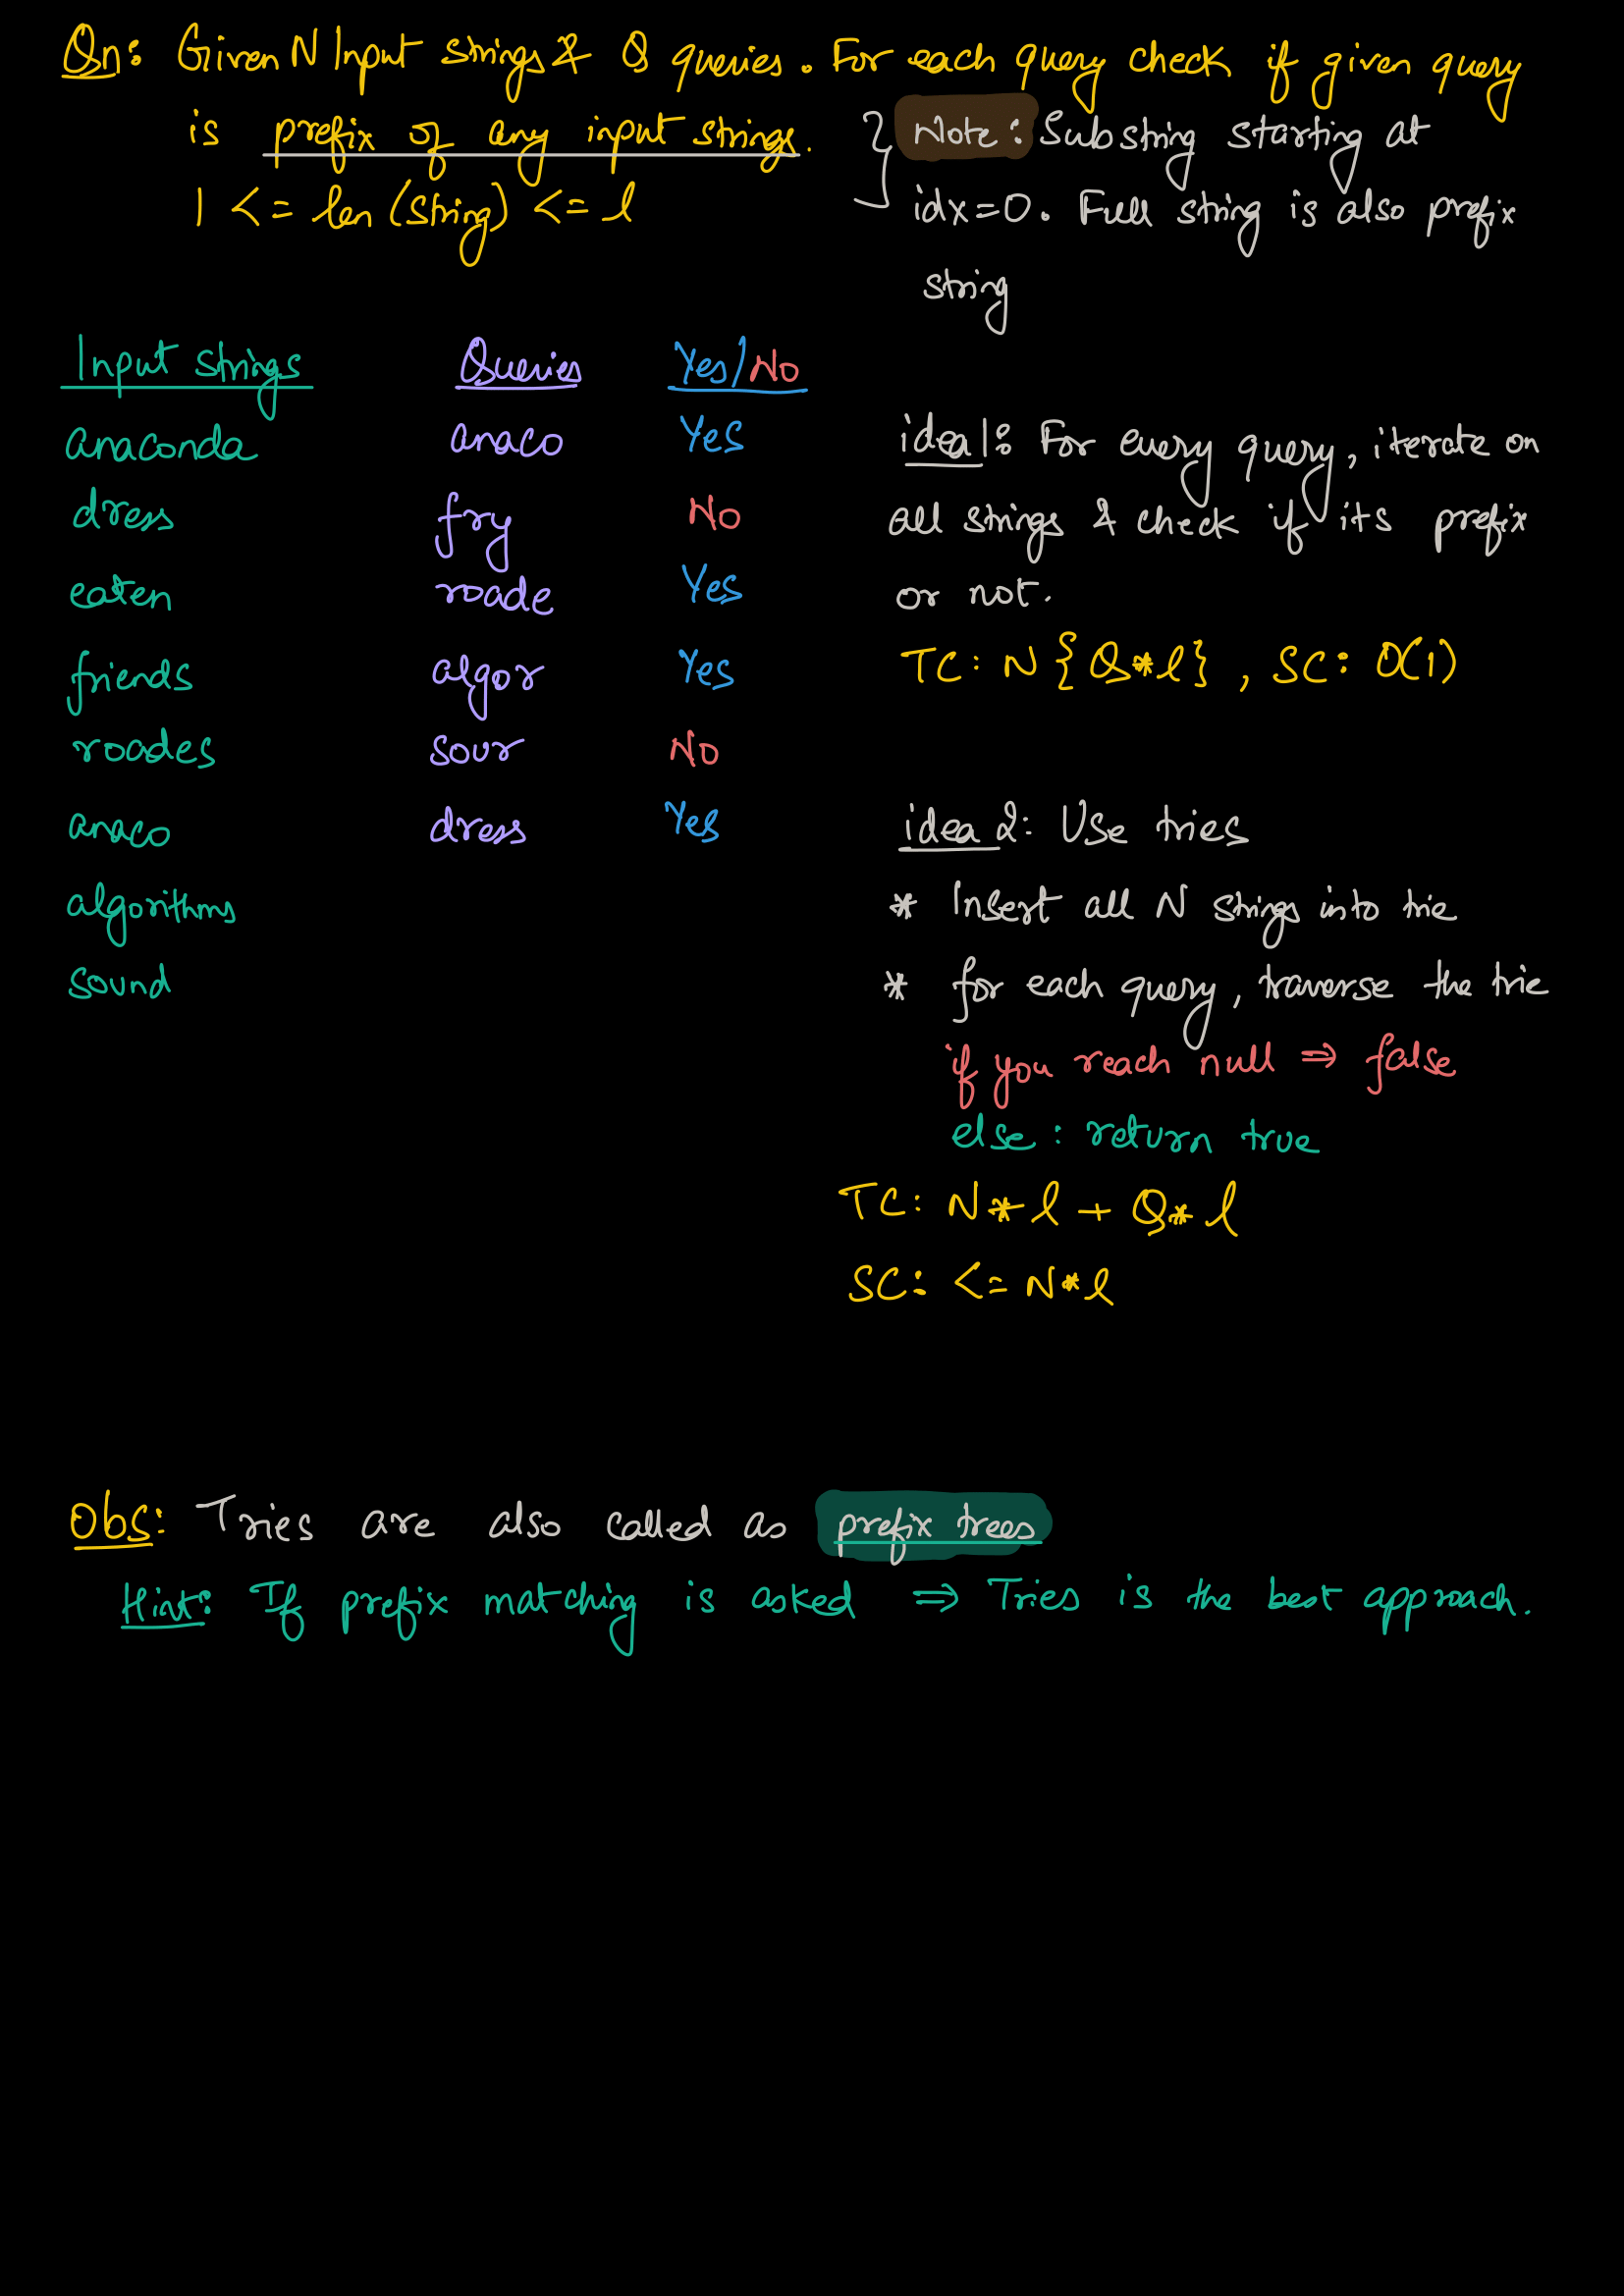 Qn: Given N Input strings & Q queries. For each query check if given query
is prefix of any input strings.
1 <= len (string) <= l
Note: Substring starting at
idx=0. Full string is also prefix
string
Input strings Queries Yes/No
anaconda anaco Yes
dress fry No
eaten roade Yes
friends algor Yes
roades sour No
anaco dress Yes
algorithms
sound
idea1: For every query, iterate on
all strings & check if its prefix
or not.
TC: N {Q*l} , SC: O(1)
idea 2: Use tries
* Insert all N strings into trie
* for each query, traverse the trie
if you reach null ⇒ false
else : return true
TC: N*l + Q*l
SC: <= N*l
Obs: Tries are also called as prefix trees
Hint: If prefix matching is asked ⇒ Tries is the best approach.